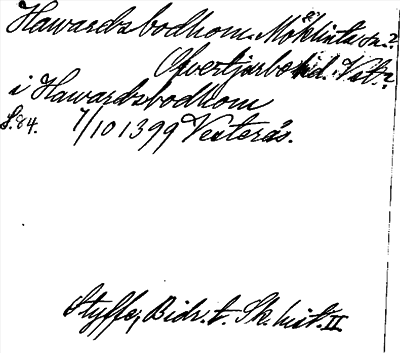 Hawardzbodhom. Möklinta sn.?
Öfvertjurbo hd. Vstm.?
i Hawardzbodhom
S. 84. 7/10 1399 Vesterås.
Styffe, Bidr. t. Sk. hist. II